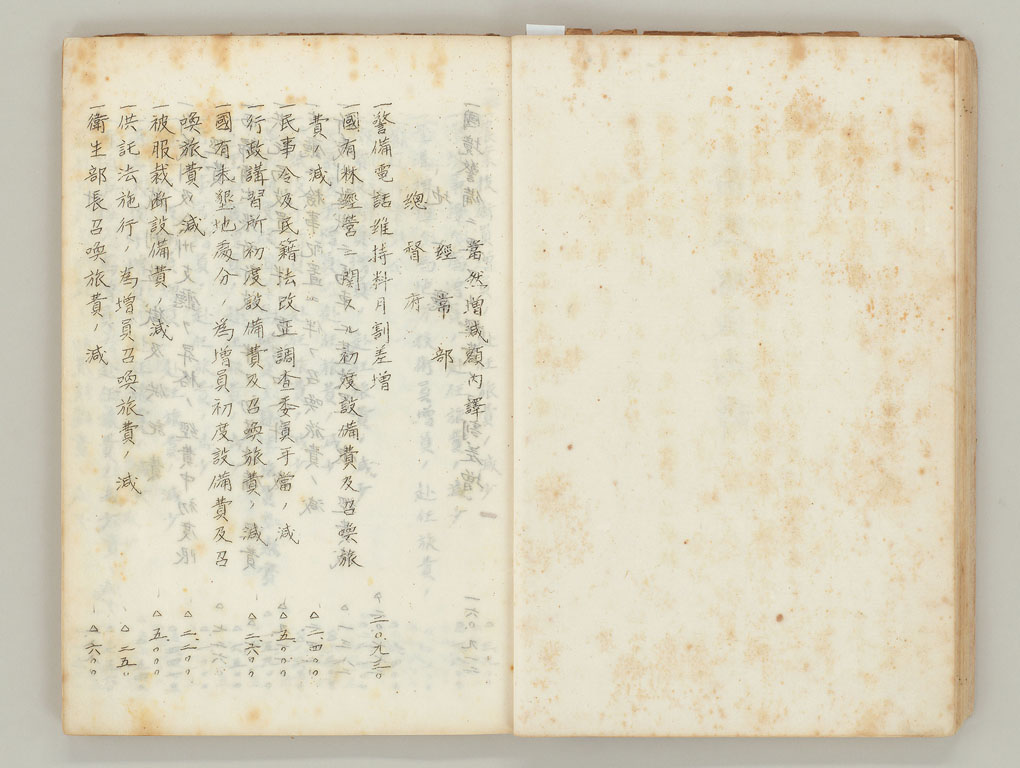 當然増減額内譯
經常部
總督府
一警備電話維持料月割差増
一國有林經營ニ関スル初度設備費及召喚旅
費ノ減 △二、四〇〇
一民事令及民籍法改正調査委員手當ノ減 △五、〇〇〇
一行政講習所初度設備費及召喚旅費ノ減 △二、六〇〇
一國有未墾地處分ノ為増員初度設備費及召
喚旅費ノ減
一被服裁断設備費ノ減 △五、〇〇〇
一供託法施行ノ為増員召喚旅費ノ減 △二五〇
一衛生部長召喚旅費ノ減 △六〇〇